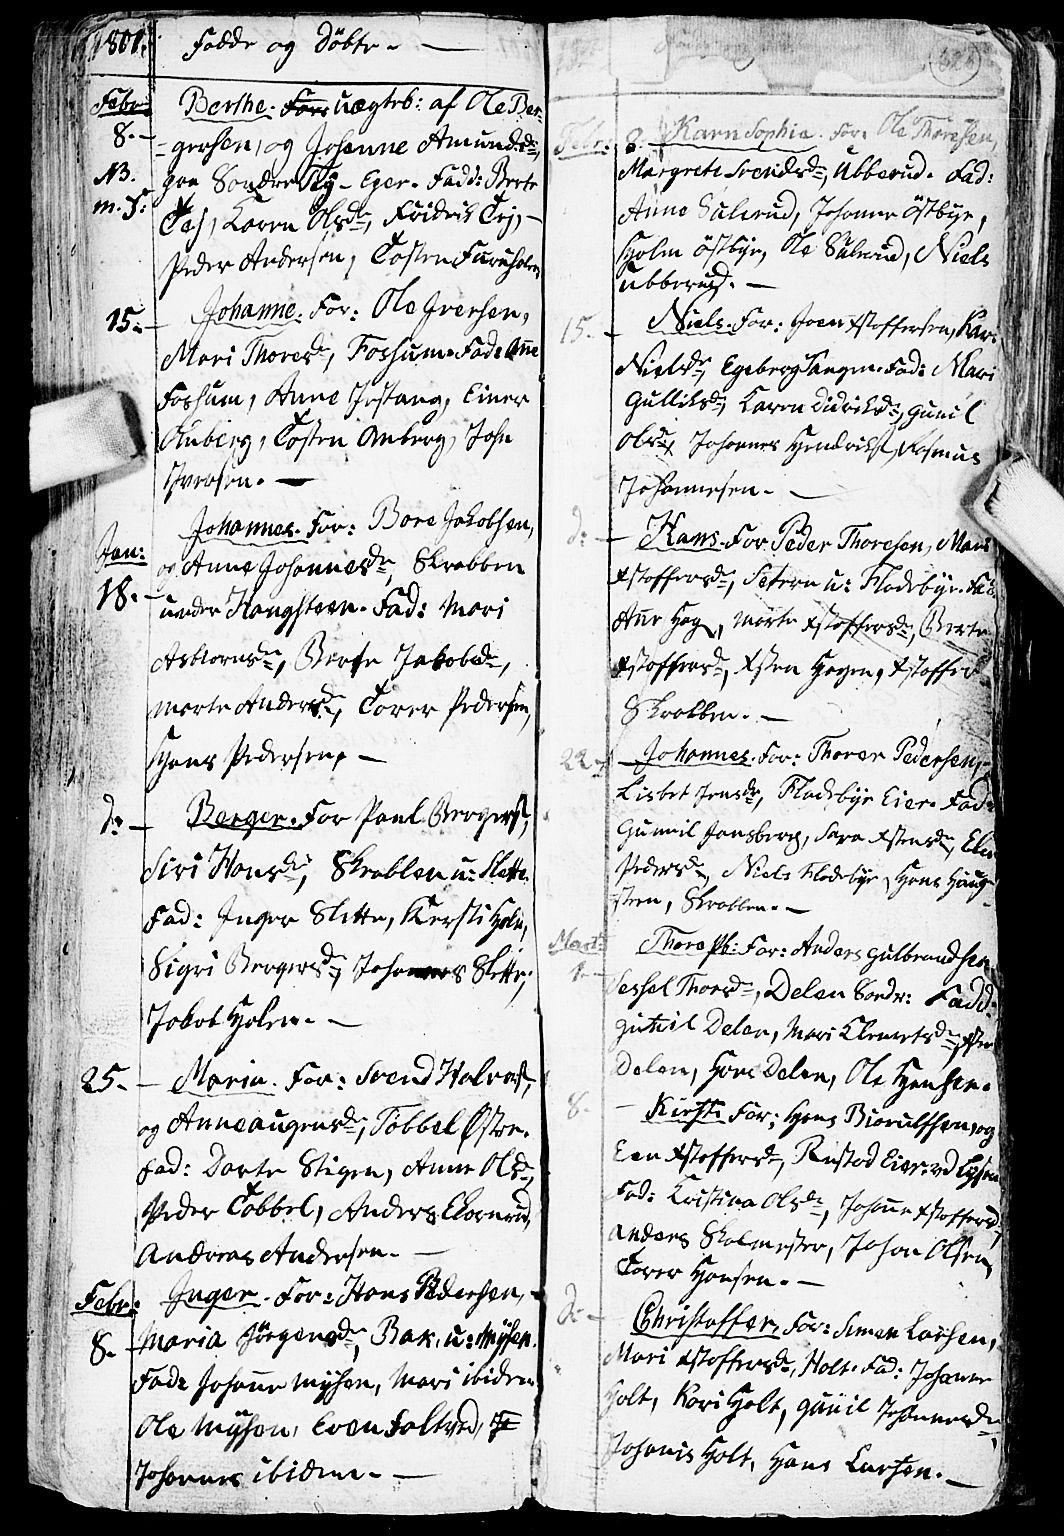 1801. Fødde og Døbte. —
Febr: Berthe. uægteb: af Ole Ber-
8. — gersen, og Johanne Amundsdr,
NB. paa Søndre Eger. Fadd: Berte
m. 5: Tej, Karen Olsdr, Fridris Tej, —
Peder Andersen, Tosten Furuholm,
15. — Johanne. For: Ole Iversen,
Mari Thoresdr, Fossum. Fad: Anne
Fossum, Anne Jostang, Einer
Onberg, Tosten Onberg, John
Iversen. —
Johannes. For: Bore Jakobsen,
Jan: og Anne Johannesdr, Skrabben
18. — under Haugsteen. Fad: Mari
Asbiørnsdr, Berte Jakobsdr,
Marte Andersdr, Torer Pedersen,
Hans Pedersen, —
d: — Berger. For Paul Bergers.,
Siri Hansdr, Skrabben u: Slette.
Fad: Inger Slitte, Kersti Holm,
Sigri Bergersdr, Johannes Slitte,
Jakob Holm. —
25. — Maria. For: Svend Halvors.,
og Anne Augensdr, Tøbbel Østre.
Fad: Dorte Stigen, Anne Olsdr,
Peder Tøbbel, Anders Ekornrud,
Andreas Andersen. —
Febr: Inger. For: Hans Pedersen, —
8. Maria Jørgensdr, Bak. u: Mysen.
Fad: Johanne Mysen, Mari ibidem
Ole Mysen, Even Foltved,
Johannes ibidem. —
Febr: 8. Karn Sophia. For: Ole Thoresen,
Margrete Svendsdr, Ubberud. Fad:
Anne Sulerud, Johanne Østbye,
Holm Østbye, Ole Sulerud, Niels
Ubberud. —
15. — Niels. For: Joen Xstoffersen, Kar:
Nielsdr, Egeberg Fad: Mari
Gulliksdr, Karen Didriksdr, Gunil
Olsdr, Johannes Hendriks., Rasmus
Johannesen. —
d: — Hans. For Peder Thoresen, Mari
Xstoffersdr, Setern u: Fladebye. Fad:
Anne Hag, Marte Xstoffersdr, Berte
Xstoffersdr, Xsten Hagen, Xstoffer
Skrabben. —
22. — Johannes. For: Thorer Pedersen,
Lisbet Jensdr, Fladebye Eier. Fad:
Guniil Jonsberg, Sara Xstensdr, Elie
Pedersdr, Niels Fladebye, Hans Haug-
steen, Skrabben. —
Mart: Thore Ph: For: Anders Gulbrandsen
1. — Sessel Thorsdr, Delen Søndr: Fadd:
Guniil Delen, Mari Clemetsdr,
Delen, Hans Delen, Ole Hansen.
8. — Kirsti For: Hans Biørulfsen, og
Een Xstoffersdr, Rustad Eier
Fad: Kristina Olsdr, Johanne Xstoffersdr,
Anders Skolmester, Johan Olsen,
Torer Hansen. —
d: — Christoffer. For: Simen Larsen,
Mari Xstoffersdr, Holt. Fad: Johanne
Holt, Kari Holt, Guniil Johannesdr,
Johanis Holt, Hans Larsen. —